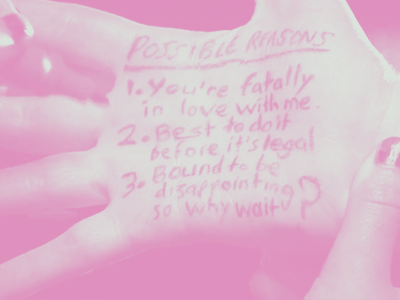 POSSIBLE REASONS
1. You're fatally
in love with me.
2. Best to do it
before it's legal
3. Bound to be
disappointing
so why wait?